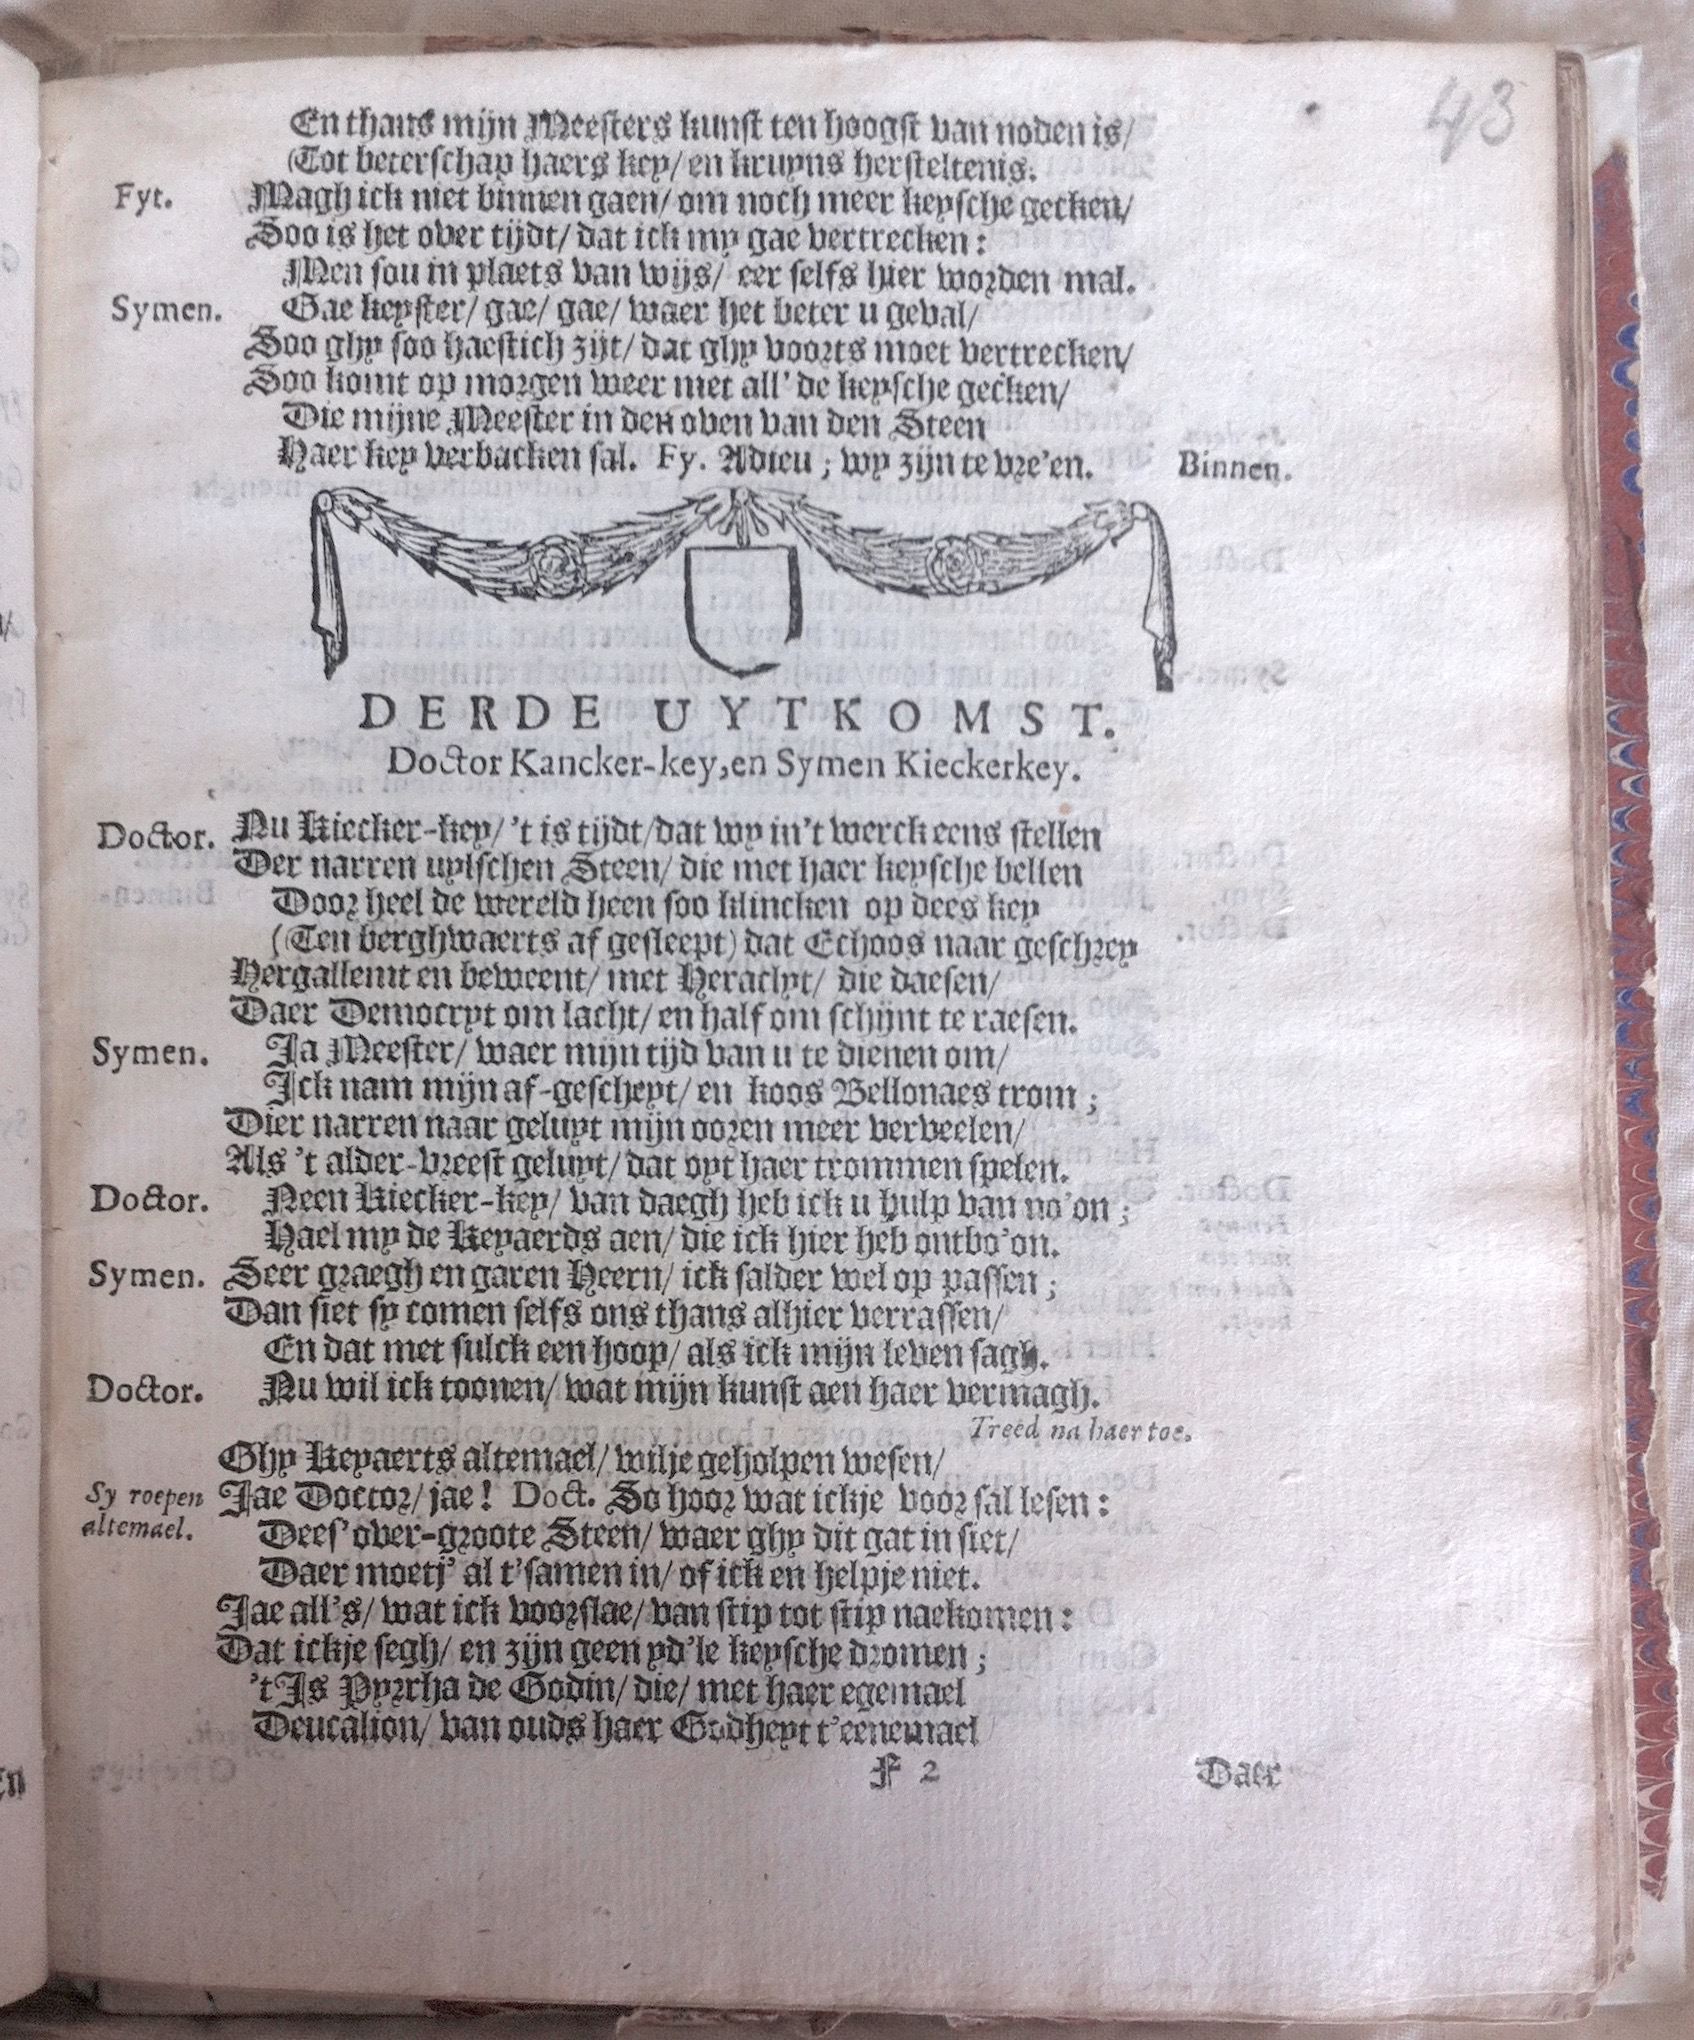 43
En thans mijn Meesters kunst ten hoogst van noden is/
(Tot beterschap haers key/ en kruyns hersteltenis.
Fyt. Magh ick niet binnen gaen/ om noch meer keysche gecken/
Soo is het over tijdt/ dat ick my gae vertrecken:
Men sou in plaets van wijs/ eer selfs hier worden mal.
Symen. Gae keyster/ gae/ gae/ waer het beter u geval/
Soo ghy soo haestich zijt/ dat ghy voorts moet vertrecken/
Soo komt op morgen weer met all' de keysche gecken/
Die mijne Meester in den oven van den Steen
Haer key verbacken sal. Fy. Adieu; wy zijn te vre'en. Binnen.
DERDE UYTKOMST.
Doctor Kancker-key, en Symen Kieckerkey.
Doctor. Nu Kiecker-key/ 't is tijdt/ dat wy in't werck eens stellen
Der narren uylschen Steen/ die met haer keysche bellen
Door heel de wereld heen soo klincken op dees key
(Ten berghwaerts af gesleept) dat Echoos naar geschrey
Hergallemt en beweent/ met Heraclyt/ die daesen/
Daer Democryt om lacht/ en half om schijnt te raesen.
Symen. Ja Meester/ waer mijn tijd van u te dienen om/
Ick nam mijn af-gescheyt/ en koos Bellonaes trom;
Dier narren naar geluyt mijn ooren meer verveelen/
Als 't alder-vreest geluyt/ dat oyt haer trommen spelen.
Doctor. Neen Kiecker-key/ van daegh heb ick u hulp van no'on;
Hael my de Keyaerds aen/ die ick hier heb ontbo'on.
Symen. Seer graegh en garen Heern/ ick salder wel op passen;
Dan siet sy comen selfs ons thans alhier verrassen/
En dat met sulck een hoop/ als ick mijn leven sagh.
Doctor. Nu wil ick toonen/ wat mijn kunst aen haer vermagh.
Treed na haer toe.
Ghy Keyaerts altemael/ wilje geholpen wesen/
Sy roepen altemael. Jae Doctor/ jae! Doct. So hoor wat ickje voor sal lesen:
Dees' over-groote Steen/ waer ghy dit gat in siet/
Daer moetj' al t'samen in/ of ick en helpje niet.
Jae all's/ wat ick voorslae/ van stip tot stip naekomen:
Dat ickje segh/ en zijn geen yd'le keysche dromen;
't Is Pyrrha de Godin/ die/ met haer egemael
Deucalion/ van ouds haer Godheyt t'eenemael
F 2 Daer